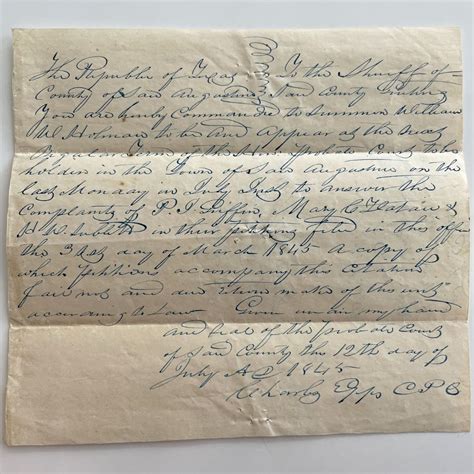 The Republic of Texas To the Sheriff of
County of San Augustine said County Greeting
You are hereby Commanded to Summon William
W Holman to be and Appear at the next
Regular Term of the Hon probate Court to be
holden in the Town of San Augustine on the
last Monday in July Inst to answer the
Complaints of P. I. Mary C &
H W Sublett in their petition filed in this office
the 31st day of March 1845 A copy of
which petition accompany this Citation
fail not and due return make of this writ
according to Law Given under my hand
and Seal of the probate Court
of said County the 12th day of
July AD 1845
Epps C P C